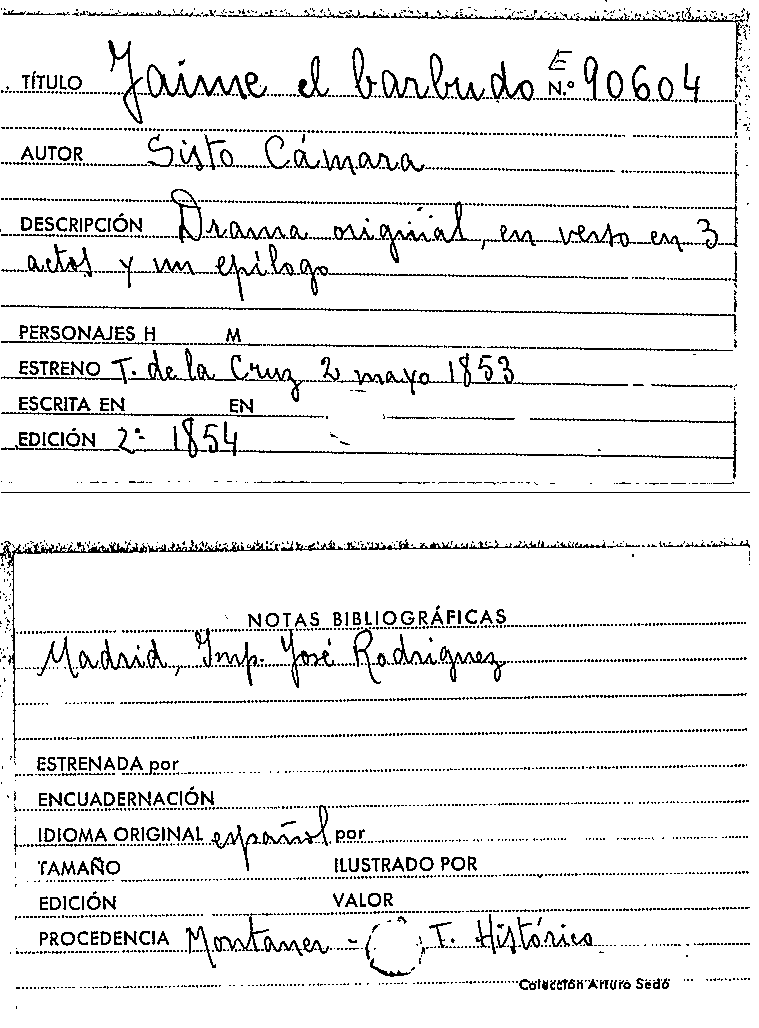 TÍTULO Jaime el barbudo E N.º 90604
AUTOR Sisto Cámara
DESCRIPCIÓN Drama original, en verso en 3
actos y un epílogo
PERSONAJES H M
ESTRENO T. de la Cruz 2 mayo 1853
ESCRITA EN EN
EDICIÓN 2ª 1854
NOTAS BIBLIOGRÁFICAS
Madrid, Imp. José Rodriguez
ESTRENADA por
ENCUADERNACIÓN
IDIOMA ORIGINAL español por
TAMAÑO ILUSTRADO POR
EDICIÓN VALOR
PROCEDENCIA Montaner - T. Histórico
Colección Arturo Sedó